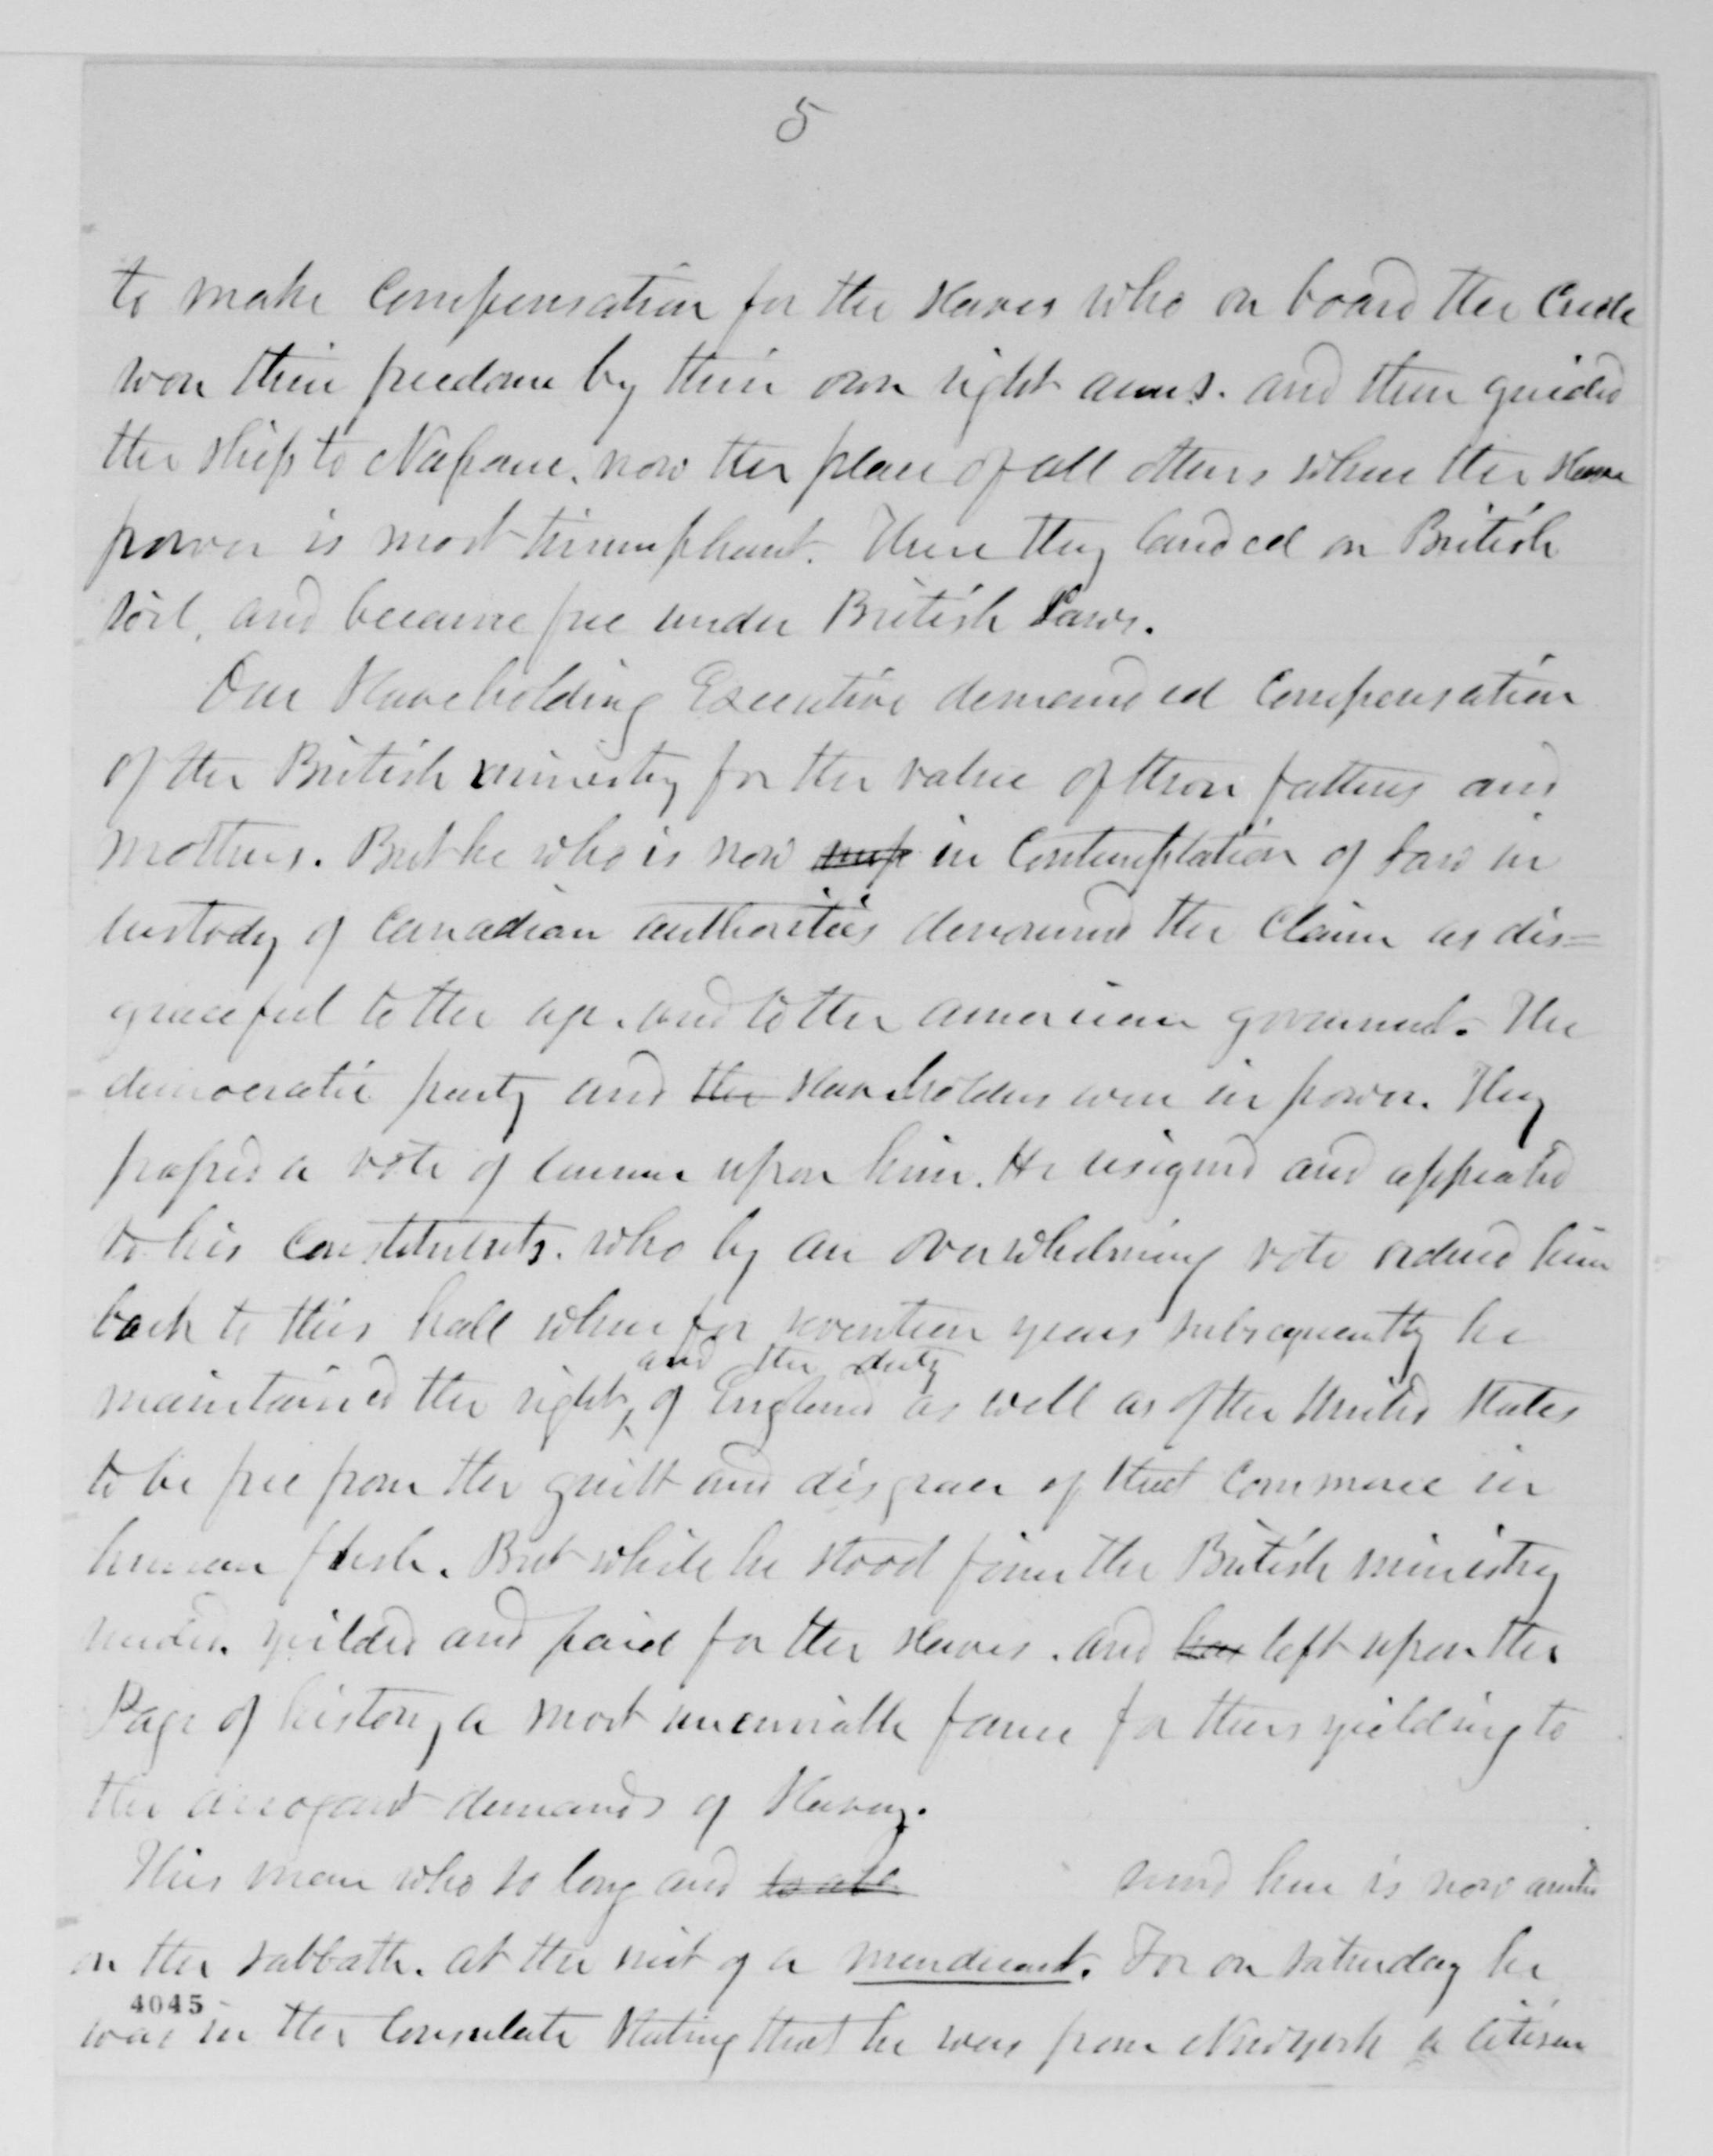 5
to make compensation for the slaves who on board the Creole
won their freedom by their own right arms. and then guided
the ship to Nassau, now the place of all others where the slave
power is most triumphant. There they landed on British
soil, and became free under British Laws.
Our Slaveholding Executive demanded compensation
of the British ministry for the value of those fathers and
mothers. But he who is now in contemplation of Law in
custody of Canadian authorities denounced the claim as dis=
graceful to the age. and to the american government. The
democratic party and the slaveholders were in power. They
passed a vote of censure upon him. He resigned and appealed
to his constituents. who by an overwhelming vote ordered him
back to this hall where for seventeen years subsequently he
and the duty
maintained the right of England as well as of the United States
to be free from the guilt and disgrace of that commerce in
human flesh. But while he stood firm the British ministry
yielded and paid for the slaves. and has left upon the
Page of history a most unenviable fame for theirs yielding to
the arrogant demands of Slavery.
This man who so long and so able here is now arrested
on the sabbath. at the suit of a mendicant. For on saturday he
4045
was in the Consulate stating that he was from New York a citizen